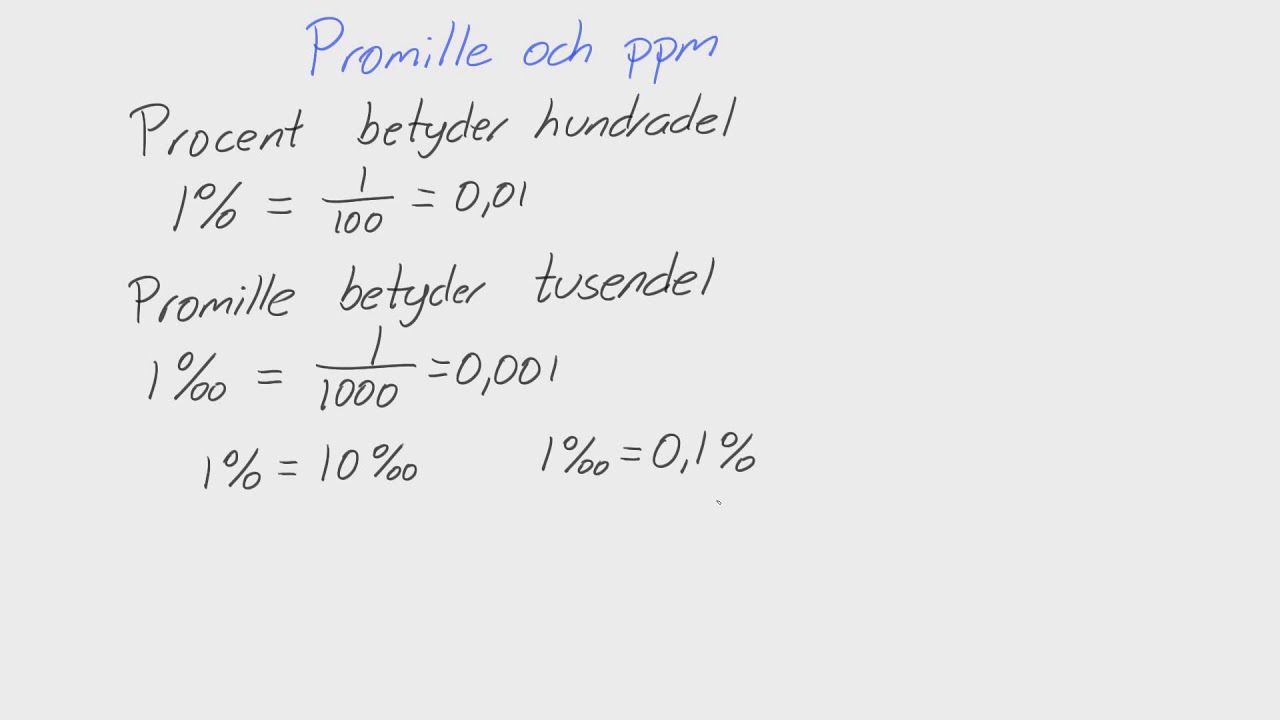 Promille och ppm
Procent betyder hundradel
1% = 1/100 = 0,01
Promille betyder tusendel
1‰ = 1/1000 = 0,001
1% = 10‰ 1‰ = 0,1%